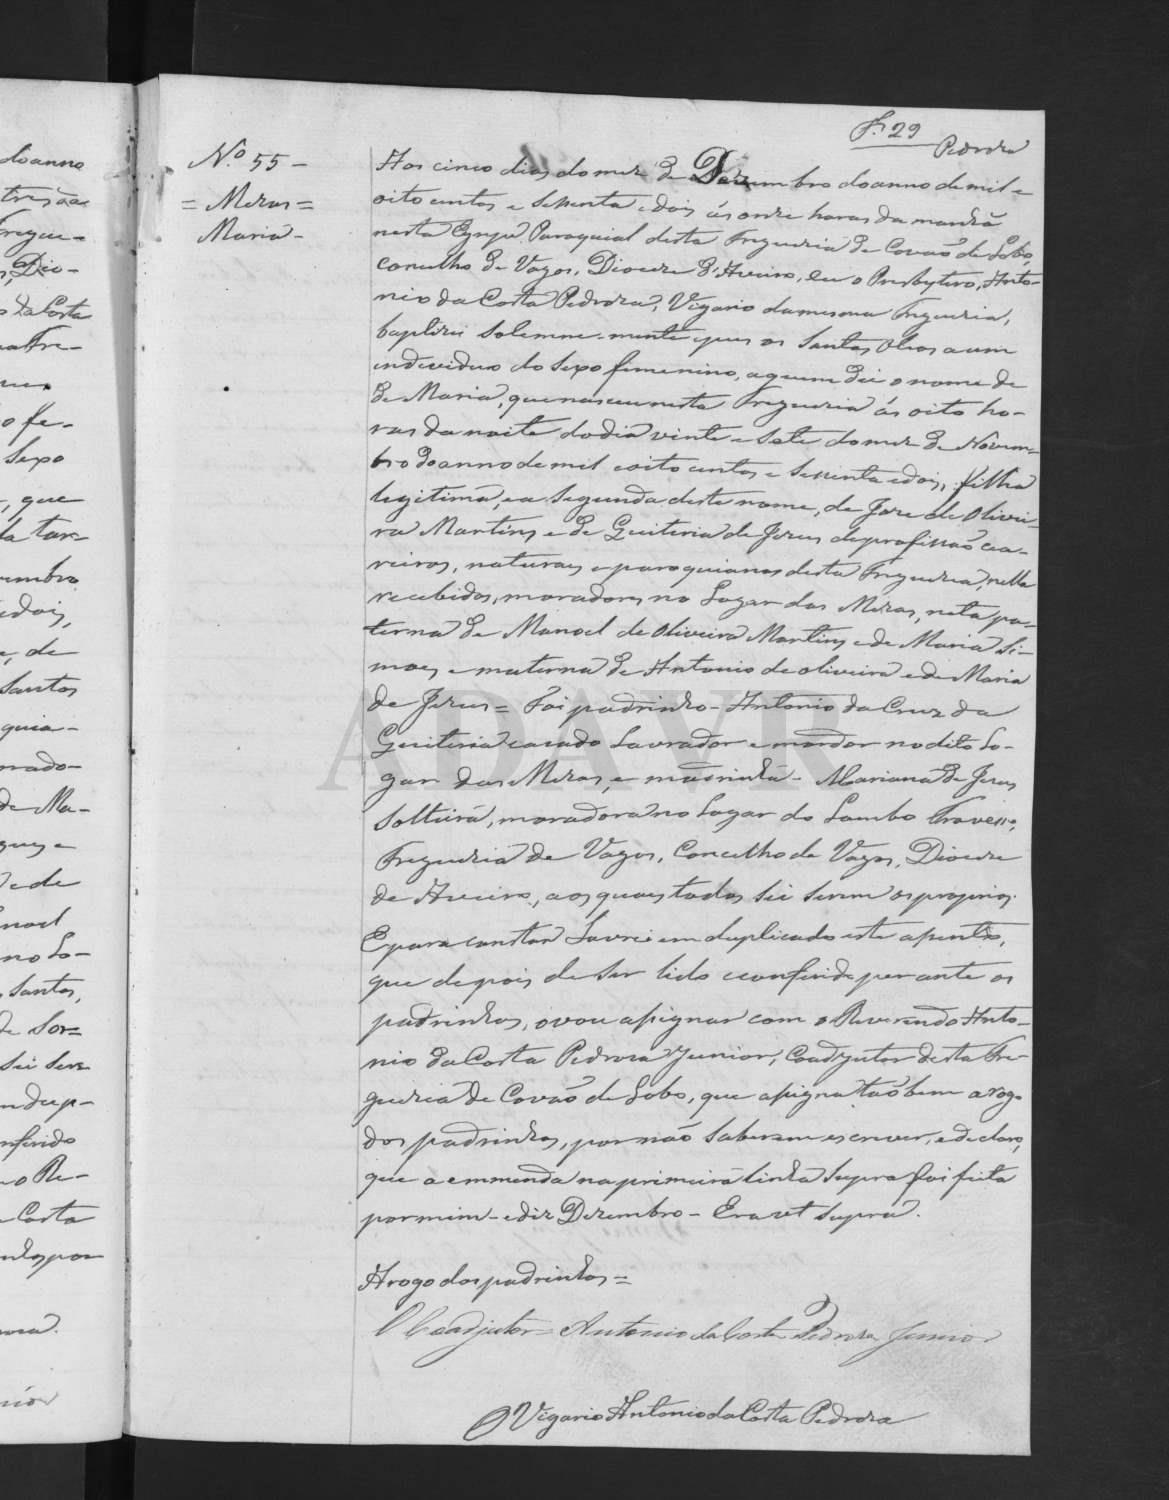 F. 29
Pedroza
N.º 55 -
= Mezas =
Maria -
Aos cinco dias do mez de Dezembro do anno de mil e
oito centos e sessenta e dois ás onze horas da manhã
nesta Egreja Paroquial desta Freguezia de Covão de Lobo,
concelho de Vagos, Diocese d'Aveiro, Eu o Presbytero, Anto-
nio da Costa Pedroza, Vigario da mesma Freguezia,
baptizei solemne-mente e puz os Santos Oleos a um
individuo do Sexo femenino, a quem dei o nome de
de Maria, que nasceu nesta Freguezia ás oito ho-
ras da noite do dia vinte e sete do mez de Novem-
bro do anno de mil e oito centos e sessenta e dois, filha
legitima, e a segunda deste nome, de Joze de Olivei-
ra Martins e de Guiteria de Jezus de profissão cea-
reiros, naturaes e paroquianos desta Freguezia, nella
recebidos, moradores no Lugar das Mezas, neta pa-
terna de Manoel de Oliveira Martins e de Maria Si-
moes e materna de Antonio de oliveira e de Maria
de Jezus = Foi padrinho - Antonio da Cruz da
Guiteria cazado Lavrador e morador no dito Lo-
gar das Mezas, e madrinha - Mariana de Jezus
Solteira, moradora no Logar do Lombo Travesso,
Freguezia de Vagos, Concelho de Vagos, Diocese
de Aveiro, aos quaes todos sei serem os proprios.
E para constar Lavrei em duplicado este assento,
que depois de ser lido e conferido perante os
padrinhos, o vou assignar com o Reverendo Anto-
nio da Costa Pedroza Junior, Coadjutor desta Fre-
guezia de Covão de Lobo, que assigna tãobem a rogo
dos padrinhos, por não saberem escrever, e declaro,
que a emmenda na primeira linha supra foi feita
por mim - e diz Dezembro - Era ut supra.
A rogo dos padrinhos =
O Coadjutor = Antonio da Costa Pedroza Junior
O Vigario Antonio da Costa Pedroza
ADAVR
do anno
Fregue-
Dio-
da Costa
o fe-
Sexo
, que
da tar-
e dois,
e, de
Santos
quia-
morado-
de Ma-
e de
no Lo-
Santos,
de Sor=
sei sere
m dup-
nferido
o Re-
Costa